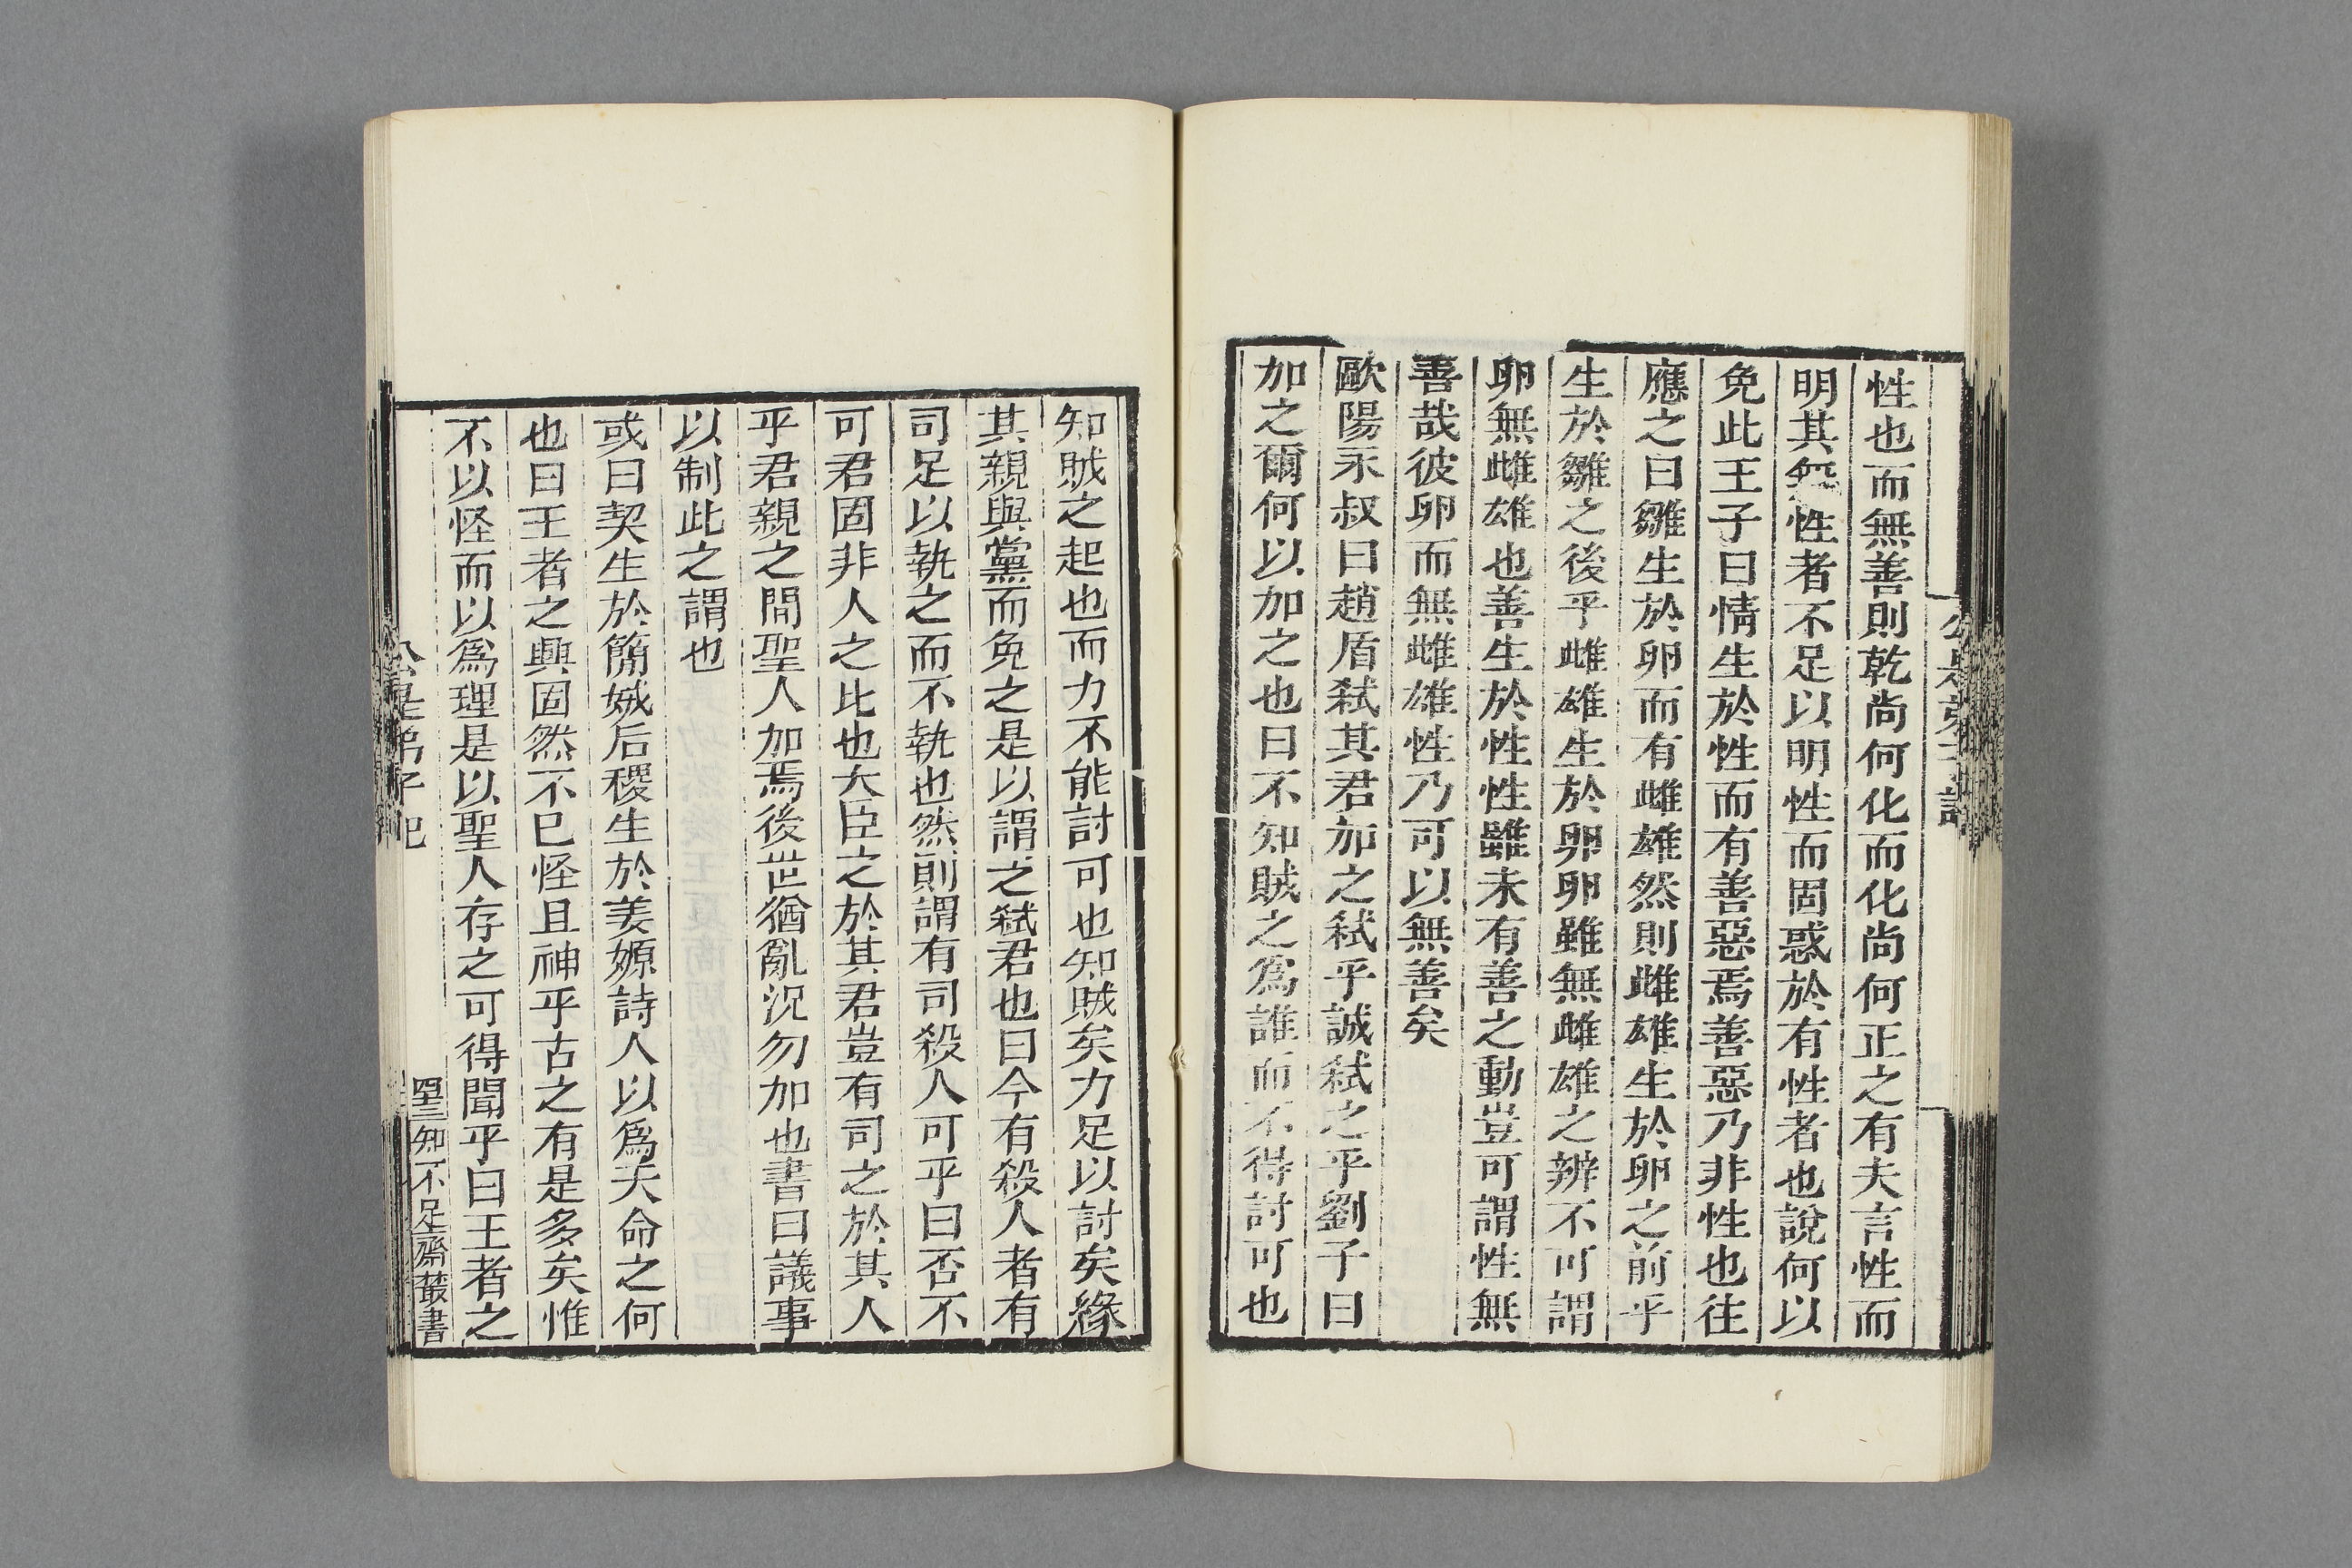 性也而無善則乾尚何化而化尚何正之有夫言性而
明其無性者不足以明性而固惑於有性者也說何以
免此王子曰情生於性而有善惡焉善惡乃非性也往
應之曰雛生於卵而有雌雄然則雌雄生於卵之前乎
生於雛之後乎雌雄生於卵卵雖無雌雄之辨不可謂
卵無雌雄也善生於性性雖未有善之動豈可謂性無
善哉彼卵而無雌雄性乃可以無善矣
歐陽永叔曰趙盾弑其君加之弑乎誠弑之乎劉子曰
加之爾何以加之也曰不知賊之為誰而不得討可也
知賊之起也而力不能討可也知賊矣力足以討矣緣
其親與黨而免之是以謂之弑君也曰今有殺人者有
司足以執之而不執也然則謂有司殺人可乎曰否不
可君固非人之比也大臣之於其君豈有司之於其人
乎君親之間聖人加焉後世猶亂況勿加也書曰議事
以制此之謂也
或曰契生於簡娀后稷生於姜嫄詩人以為天命之何
也曰王者之興固然不已怪且神乎古之有是多矣惟
不以怪而以為理是以聖人存之可得聞乎曰王者之
公是弟子記
知不足齋叢書